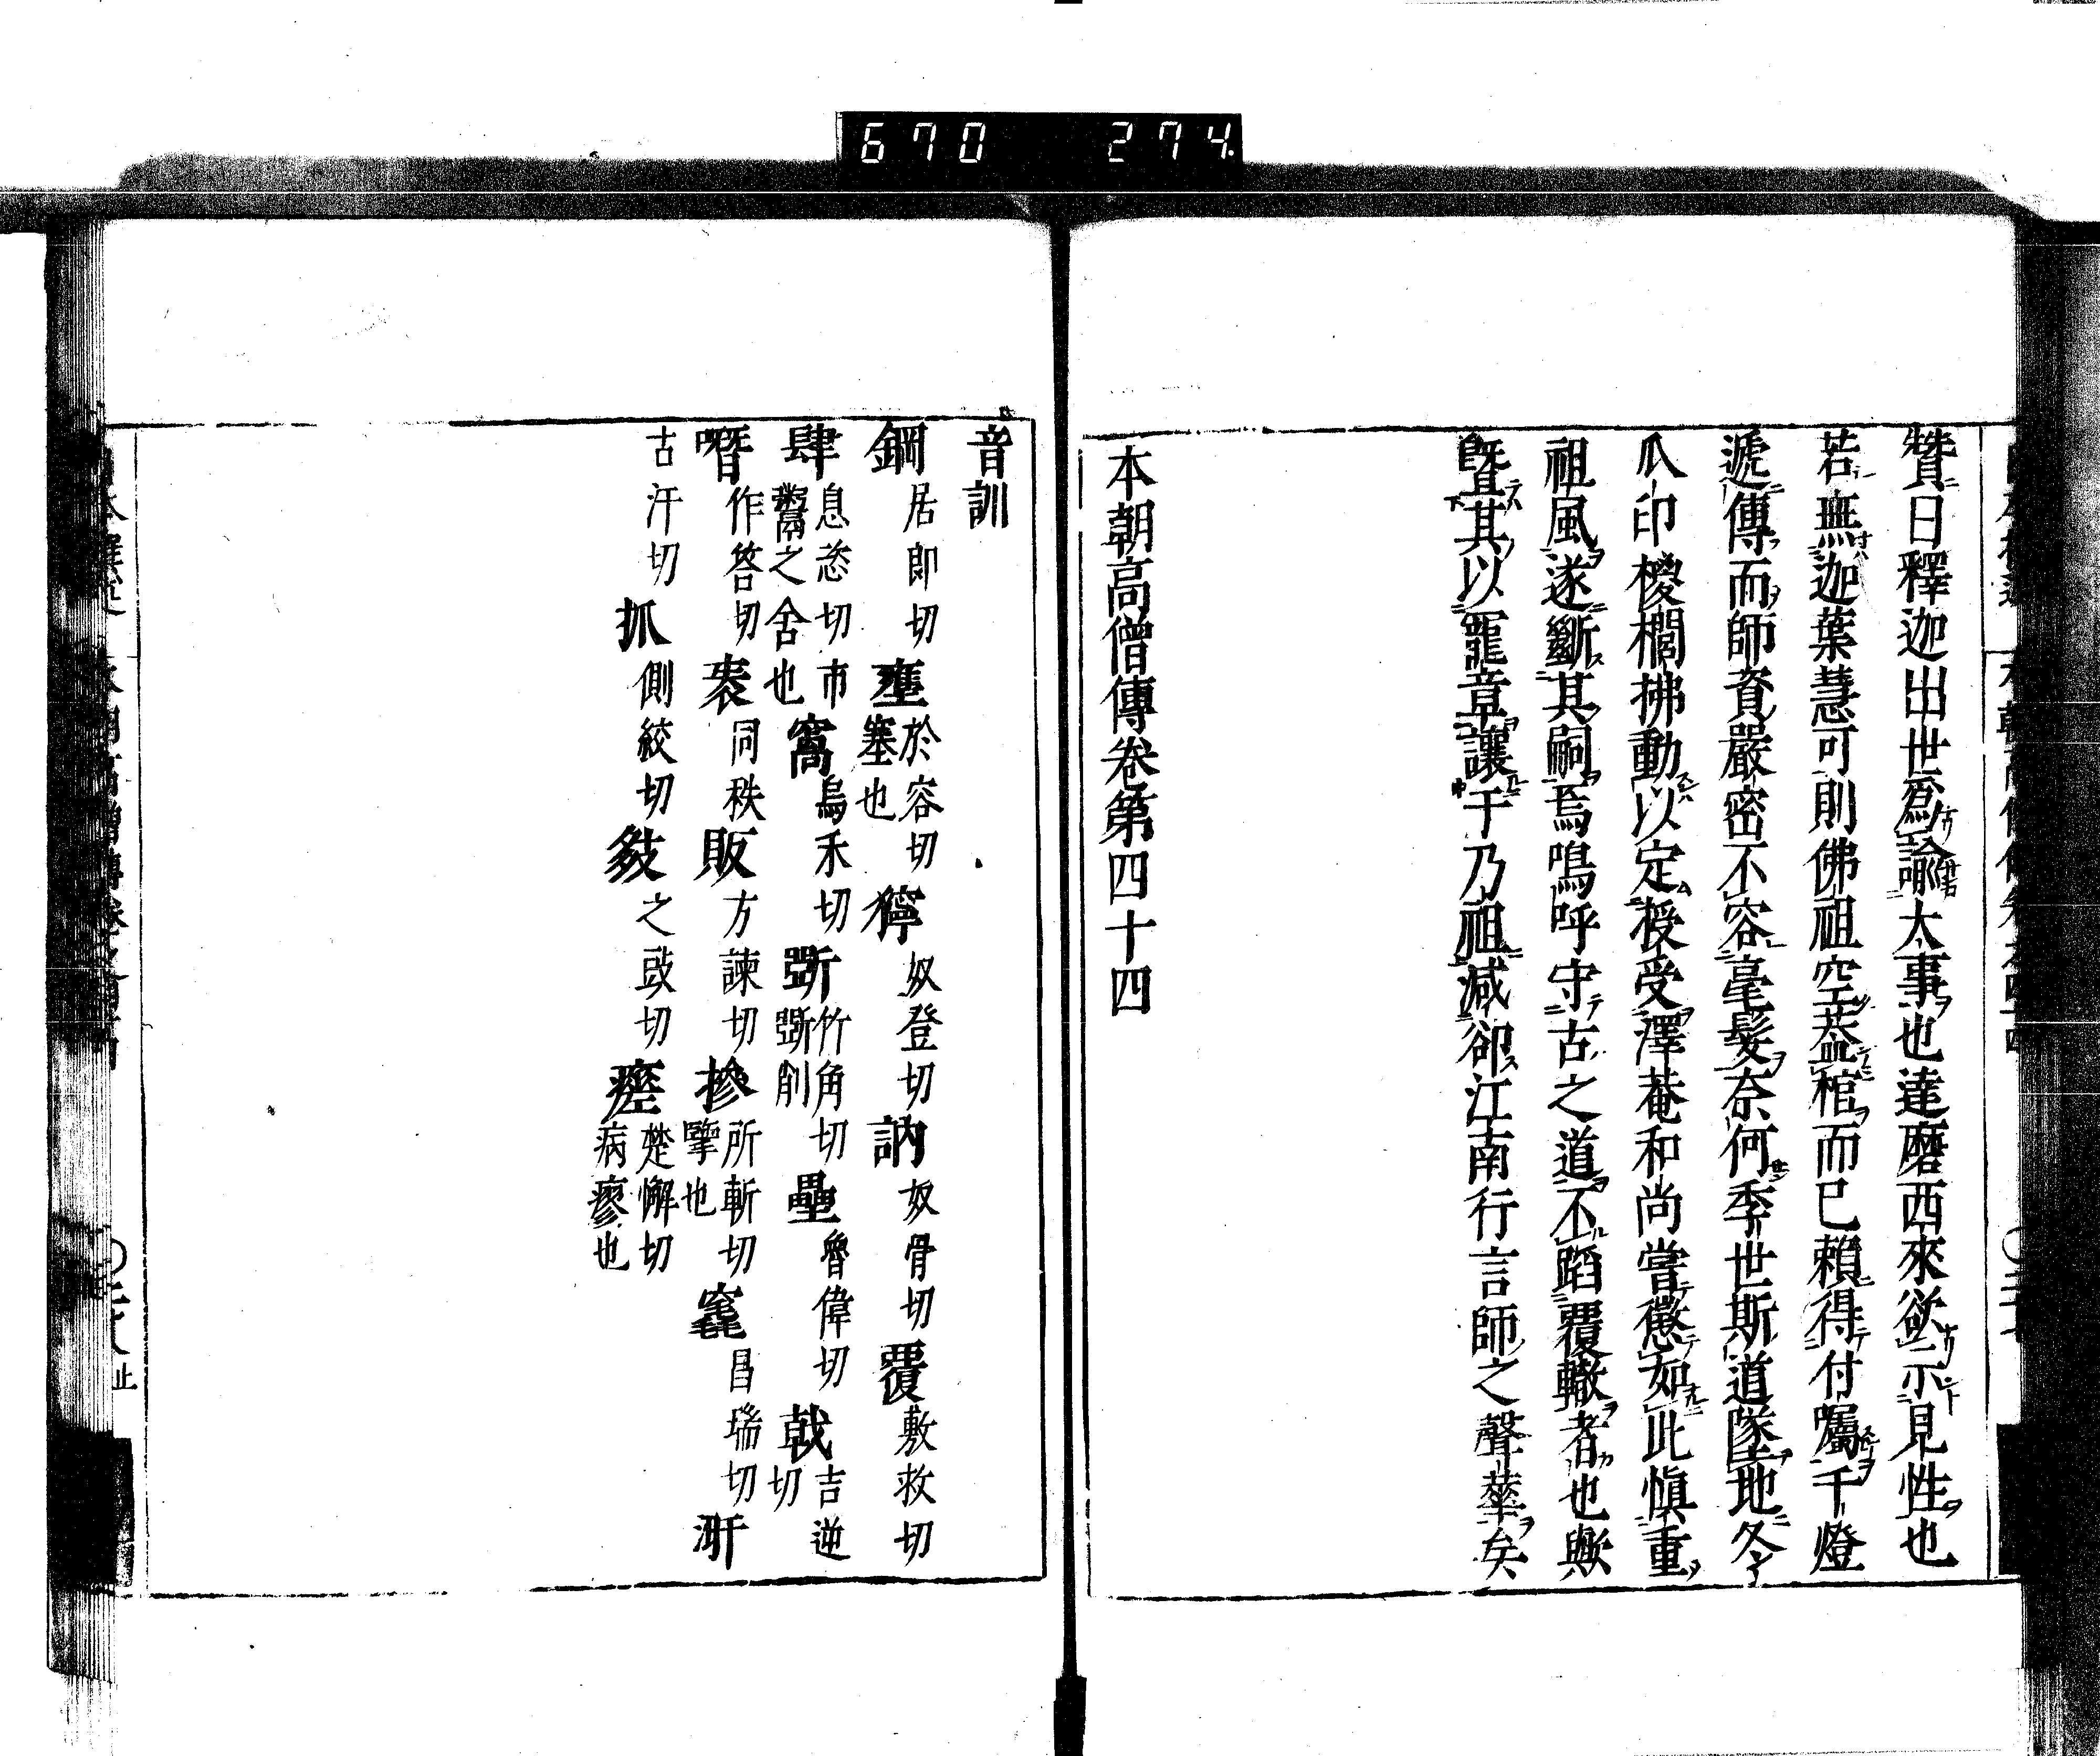 670 274
贊曰釋迦出世爲諭大事也達磨西來欲示見性也
若無迦葉慧可則佛祖空葢棺而已賴得付囑千燈
遞傳而師資嚴密不容毫髮奈何季世斯道墜地冬
瓜印椶櫚拂動以定授受澤菴和尚嘗懲如此愼重
祖風遂斷其嗣焉嗚呼守古之道不蹈覆轍者也歟
曁其以寵章讓于乃祖減卻江南行言師之聲華矣
本朝高僧傳卷第四十四
音訓
鋼 居郎切 壅 於容切塞也 獰 奴登切 訥 奴骨切 覆 敷救切
肆 息恣切市鬻之舍也 窩 烏禾切 斲 竹角切斲削 壘 魯偉切 戟 吉逆切
噆 作答切 袠 同秩 販 方諫切 摻 所斬切擥也 竁 昌瑞切 湃
古汗切 抓 側絞切 㩼 之豉切 瘥 楚懈切病瘳也